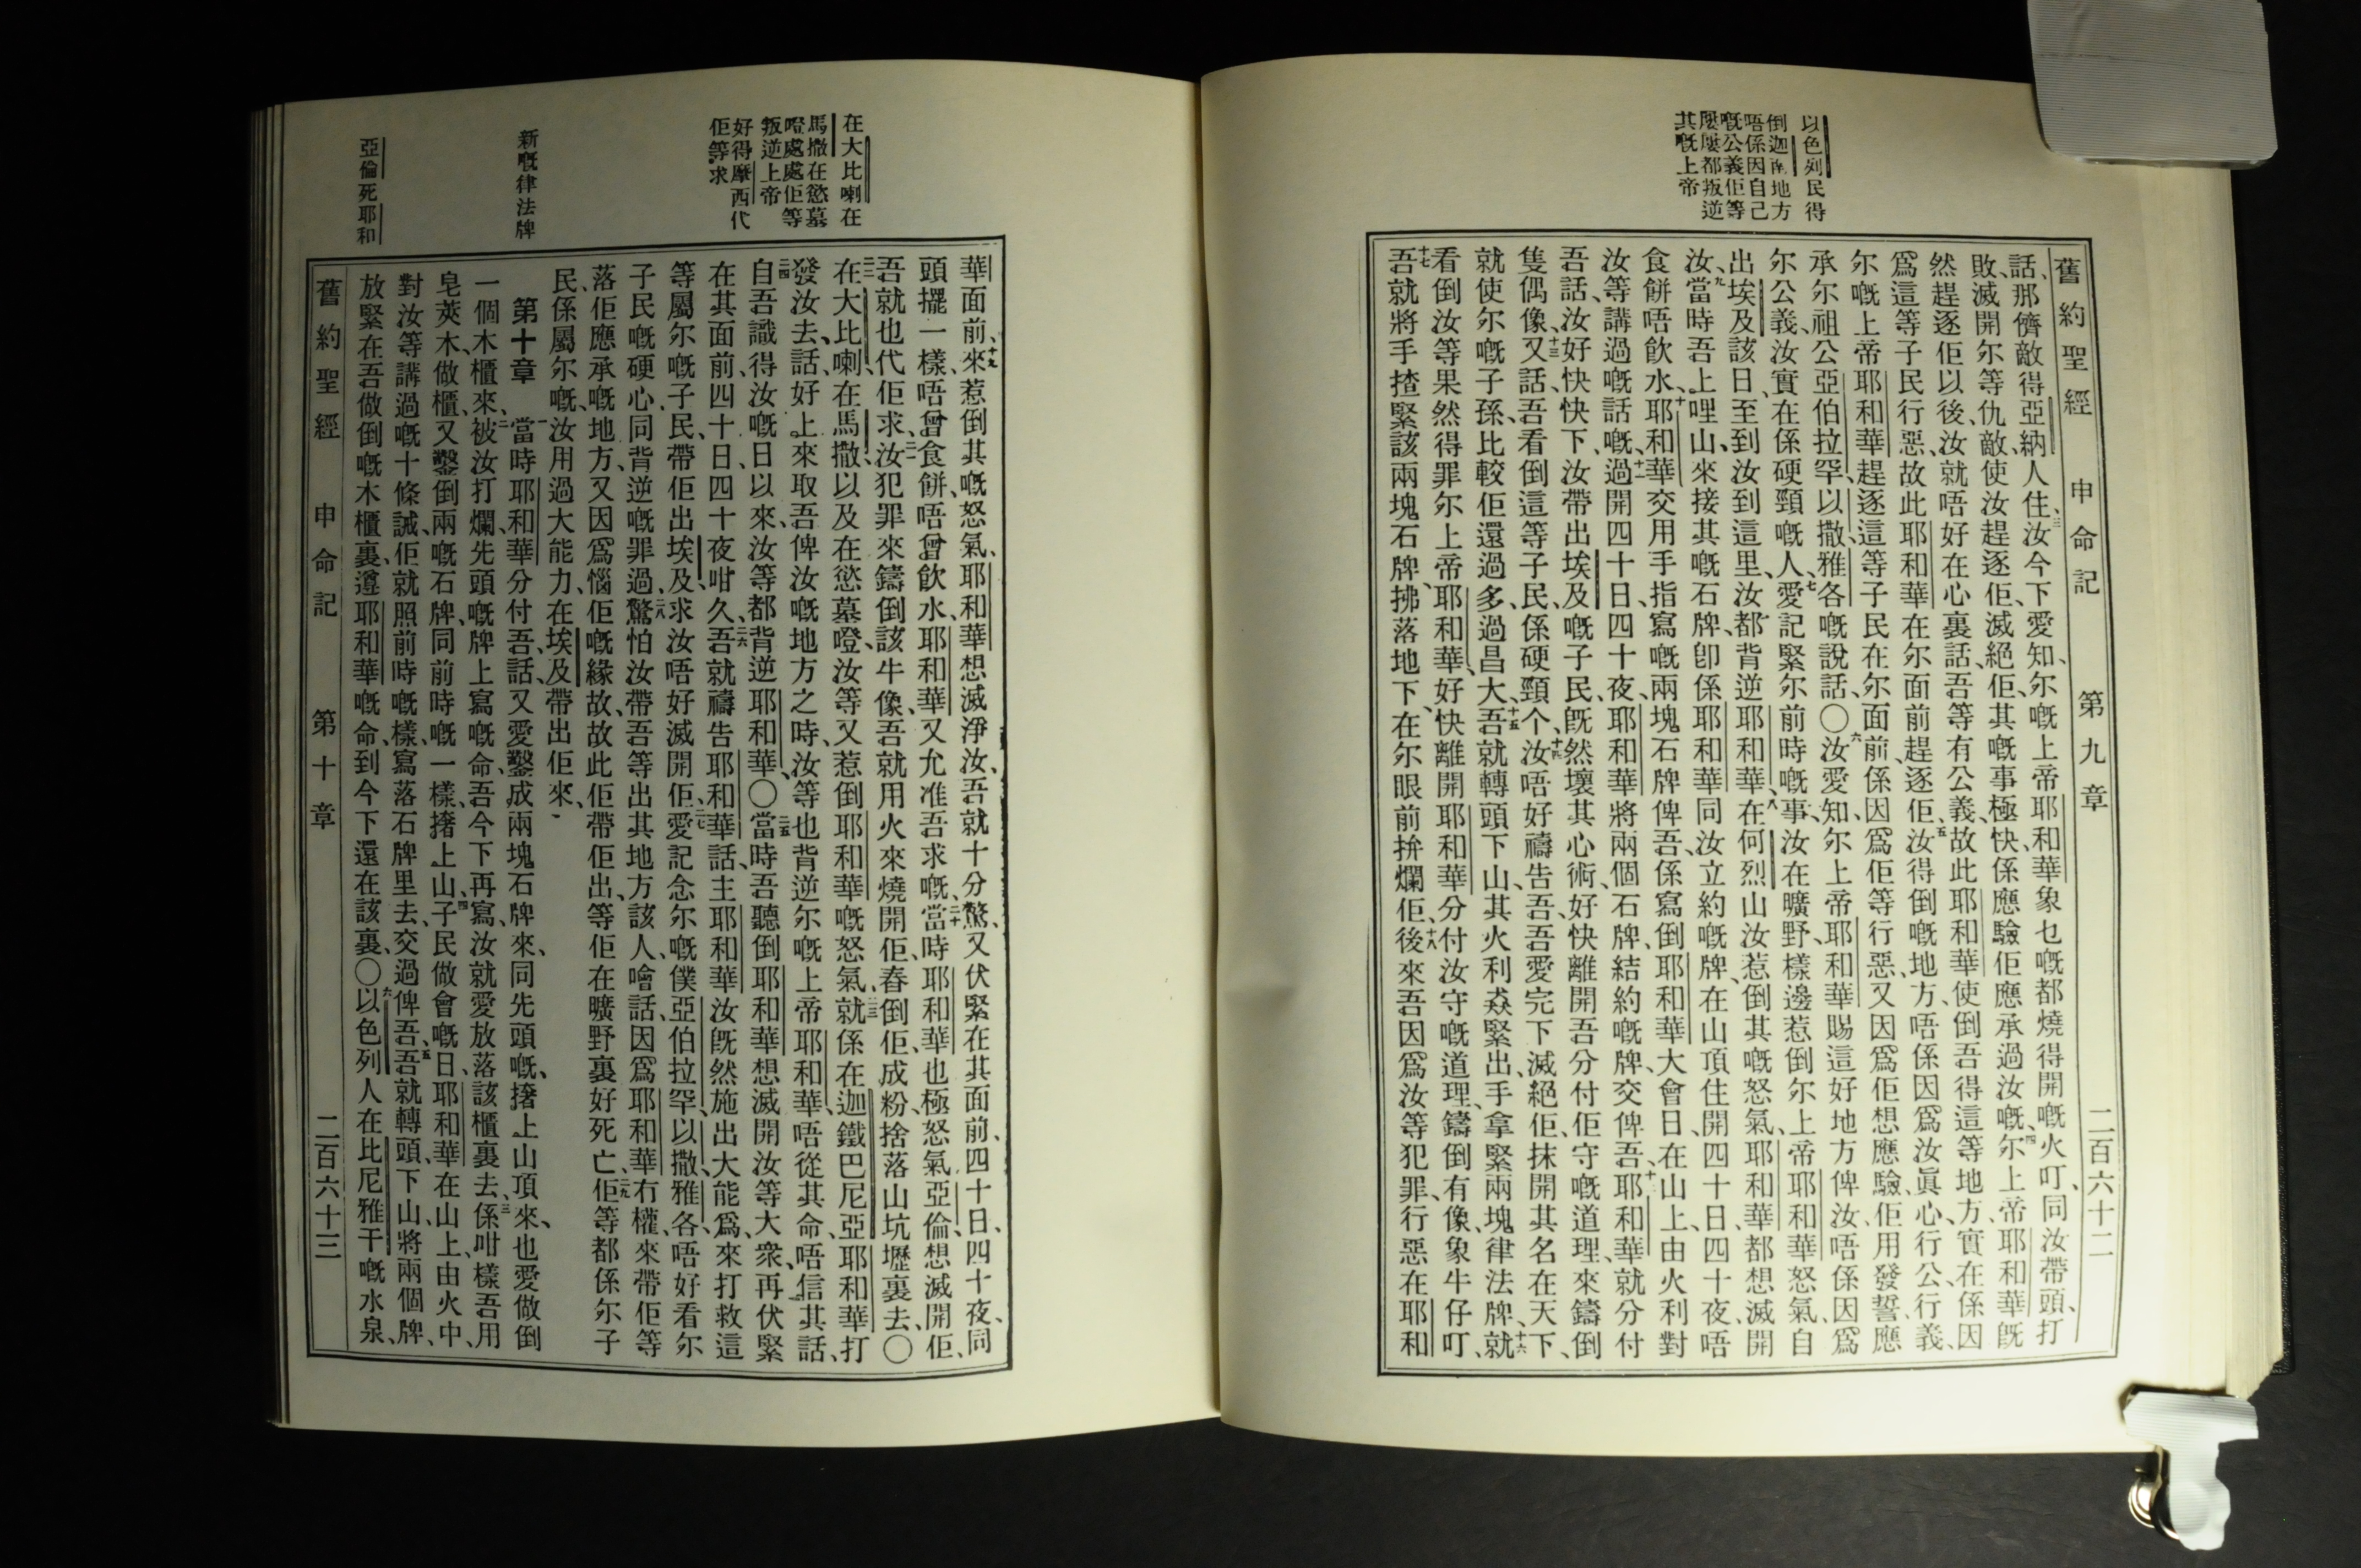 以色列民得
倒迦南地方
唔係因自己
嘅公義佢等
屢屢都叛逆
其嘅上帝
舊約聖經 申命記 第九章 二百六十二
話、那儕敵得亞納人住、三汝今下愛知、尔嘅上帝耶和華象乜嘅都燒得開嘅火叮、同汝帶頭、打
敗、滅開尔等仇敵、使汝趕逐佢、滅絕佢、其嘅事極快、係應驗佢應承過汝嘅、四尔上帝耶和華旣
然趕逐佢以後、汝就唔好在心裏話、吾等有公義、故此耶和華使倒吾得這等地方、實在係因
爲這等子民行惡、故此耶和華在尔面前趕逐佢、五汝得倒嘅地方、唔係因爲汝眞心、行公、行義、
尔嘅上帝耶和華趕逐這等子民在尔面前、係因爲佢等行惡、又因爲佢想應驗、佢用發誓應
承尔祖公亞伯拉罕、以撒、雅各嘅說話〇六汝愛知、尔上帝耶和華賜這好地方俾汝、唔係因爲
尔公義、汝實在係硬頸嘅人、七愛記緊尔前時嘅事、汝在曠野、樣邊惹倒尔上帝耶和華怒氣、自
出埃及該日至到汝到這里、汝都背逆耶和華、八在何烈山汝惹倒其嘅怒氣、耶和華都想滅開
汝、九當時吾上哩山、來接其嘅石牌、卽係耶和華同汝立約嘅牌、在山頂住開四十日四十夜、唔
食餅唔飲水、十耶和華交用手指寫嘅兩塊石牌俾吾、係寫倒耶和華大會日、在山上、由火利對
汝等講過嘅話嘅、十一過開四十日、四十夜、耶和華將兩個石牌、結約嘅牌、交俾吾、十二耶和華就分付
吾話、汝好快快下、汝帶出埃及嘅子民、旣然壞其心術、好快離開吾分付佢守嘅道理、來鑄倒
隻偶像、十三又話、吾看倒這等子民、係硬頸个、十四汝唔好禱告吾、吾愛完下滅絕佢、抹開其名在天下、
就使尔嘅子孫、比較佢還過多、過昌大、十五吾就轉頭下山、其火利猋緊出、手拿緊兩塊律法牌、十六就
看倒汝等果然得罪尔上帝耶和華、好快離開耶和華分付汝守嘅道理、鑄倒有像、象牛仔叮、
十七吾就將手揸緊該兩塊石牌、拂落地下、在尔眼前拚爛佢、十八後來吾因爲汝等犯罪、行惡在耶和
在大比喇在
馬撒在慾墓
噔處處佢等
叛逆上帝
好得摩西代
佢等求
新嘅律法牌
亞倫死耶和
華面前、十九來惹倒其嘅怒氣、耶和華想滅淨汝、吾就十分驚、二十又伏緊在其面前、四十日、四十夜、同
頭擺一樣、唔曾食餅、唔曾飲水、耶和華又允准吾求嘅、當時耶和華也極怒氣亞倫、想滅開佢、
吾就也代佢求、二一汝犯罪來鑄倒該牛像、吾就用火來燒開佢、舂倒佢、成粉、捨落山坑壢裏去、〇
二二在大比喇、在馬撒、以及在慾墓噔、汝等又惹倒耶和華嘅怒氣、二三就係在迦鐵巴尼亞、耶和華打
發汝去、話、好上來取吾俾汝嘅地方之時、汝等也背逆尔嘅上帝耶和華、唔從其命、唔信其話、
二四自吾識得汝嘅日以來、汝等都背逆耶和華、〇二五當時吾聽倒耶和華想滅開汝等大衆、再伏緊
在其面前、四十日、四十夜咁久、二六吾就禱告耶和華話、主耶和華、汝旣然施出大能爲、來打救這
等屬尔嘅子民、帶佢出埃及、求汝唔好滅開佢、二七愛記念尔嘅僕亞伯拉罕、以撒、雅各、唔好看尔
子民嘅硬心、同背逆嘅罪過、二八驚怕汝帶吾等出其地方該人噲話、因爲耶和華冇權、來帶佢等
落佢應承嘅地方、又因爲惱佢嘅緣故、故此佢帶佢出、等佢在曠野裏好死亡、二九佢等都係尔子
民、係屬尔嘅、汝用過大能力、在埃及帶出佢來、
第十章 一當時耶和華分付吾話、又愛鑿成兩塊石牌來、同先頭嘅、撦上山頂來、也愛做倒
一個木櫃來、二被汝打爛先頭嘅牌上寫嘅命、吾今下再寫、汝就愛放落該櫃裏去、三係咁樣吾用
皂莢木做櫃、又鑿倒兩嘅石牌、同前時嘅一樣、撦上山、四子民做會嘅日、耶和華在山上、由火中、
對汝等講過嘅十條誡、佢就照前時嘅樣、寫落石牌里去、交過俾吾、五吾就轉頭、下山、將兩個牌、
放緊在吾做倒嘅木櫃裏、遵耶和華嘅命、到今下還在該裏、〇六以色列人在比尼雅干嘅水泉、
舊約聖經 申命記 第十章 二百六十三